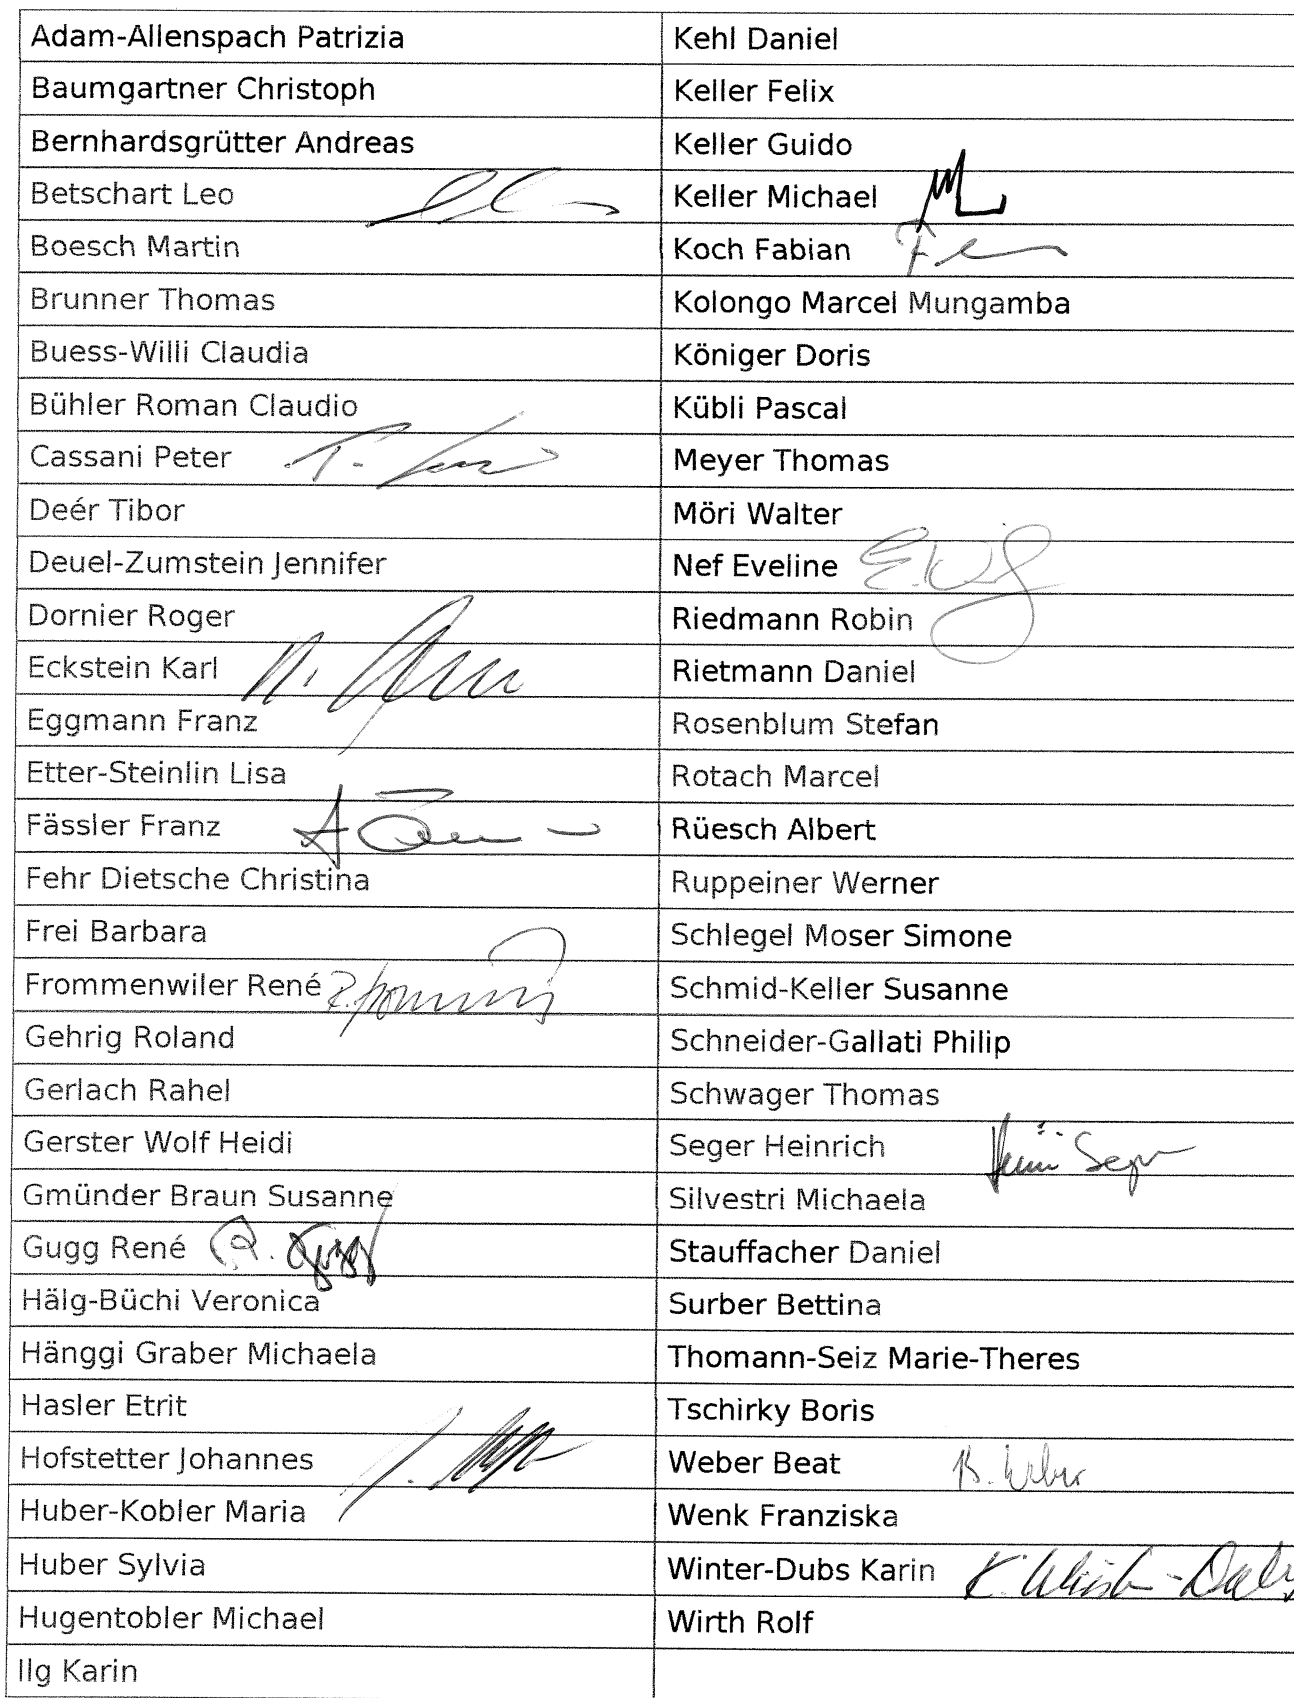 Adam-Allenspach Patrizia
Baumgartner Christoph
Bernhardsgrütter Andreas
Betschart Leo
Boesch Martin
Brunner Thomas
Buess-Willi Claudia
Bühler Roman Claudio
Cassani Peter
Deér Tibor
Deuel-Zumstein Jennifer
Dornier Roger
Eckstein Karl
Eggmann Franz
Etter-Steinlin Lisa
Fässler Franz
Fehr Dietsche Christina
Frei Barbara
Frommenwiler René
Gehrig Roland
Gerlach Rahel
Gerster Wolf Heidi
Gmünder Braun Susanne
Gugg René R. Gugg
Hälg-Büchi Veronica
Hänggi Graber Michaela
Hasler Etrit
Hofstetter Johannes
Huber-Kobler Maria
Huber Sylvia
Hugentobler Michael
Ilg Karin
Kehl Daniel
Keller Felix
Keller Guido
Keller Michael
Koch Fabian
Kolongo Marcel Mungamba
Königer Doris
Kübli Pascal
Meyer Thomas
Möri Walter
Nef Eveline
Riedmann Robin
Rietmann Daniel
Rosenblum Stefan
Rotach Marcel
Rüesch Albert
Ruppeiner Werner
Schlegel Moser Simone
Schmid-Keller Susanne
Schneider-Gallati Philip
Schwager Thomas
Seger Heinrich
Silvestri Michaela
Stauffacher Daniel
Surber Bettina
Thomann-Seiz Marie-Theres
Tschirky Boris
Weber Beat B. Weber
Wenk Franziska
Winter-Dubs Karin
Wirth Rolf